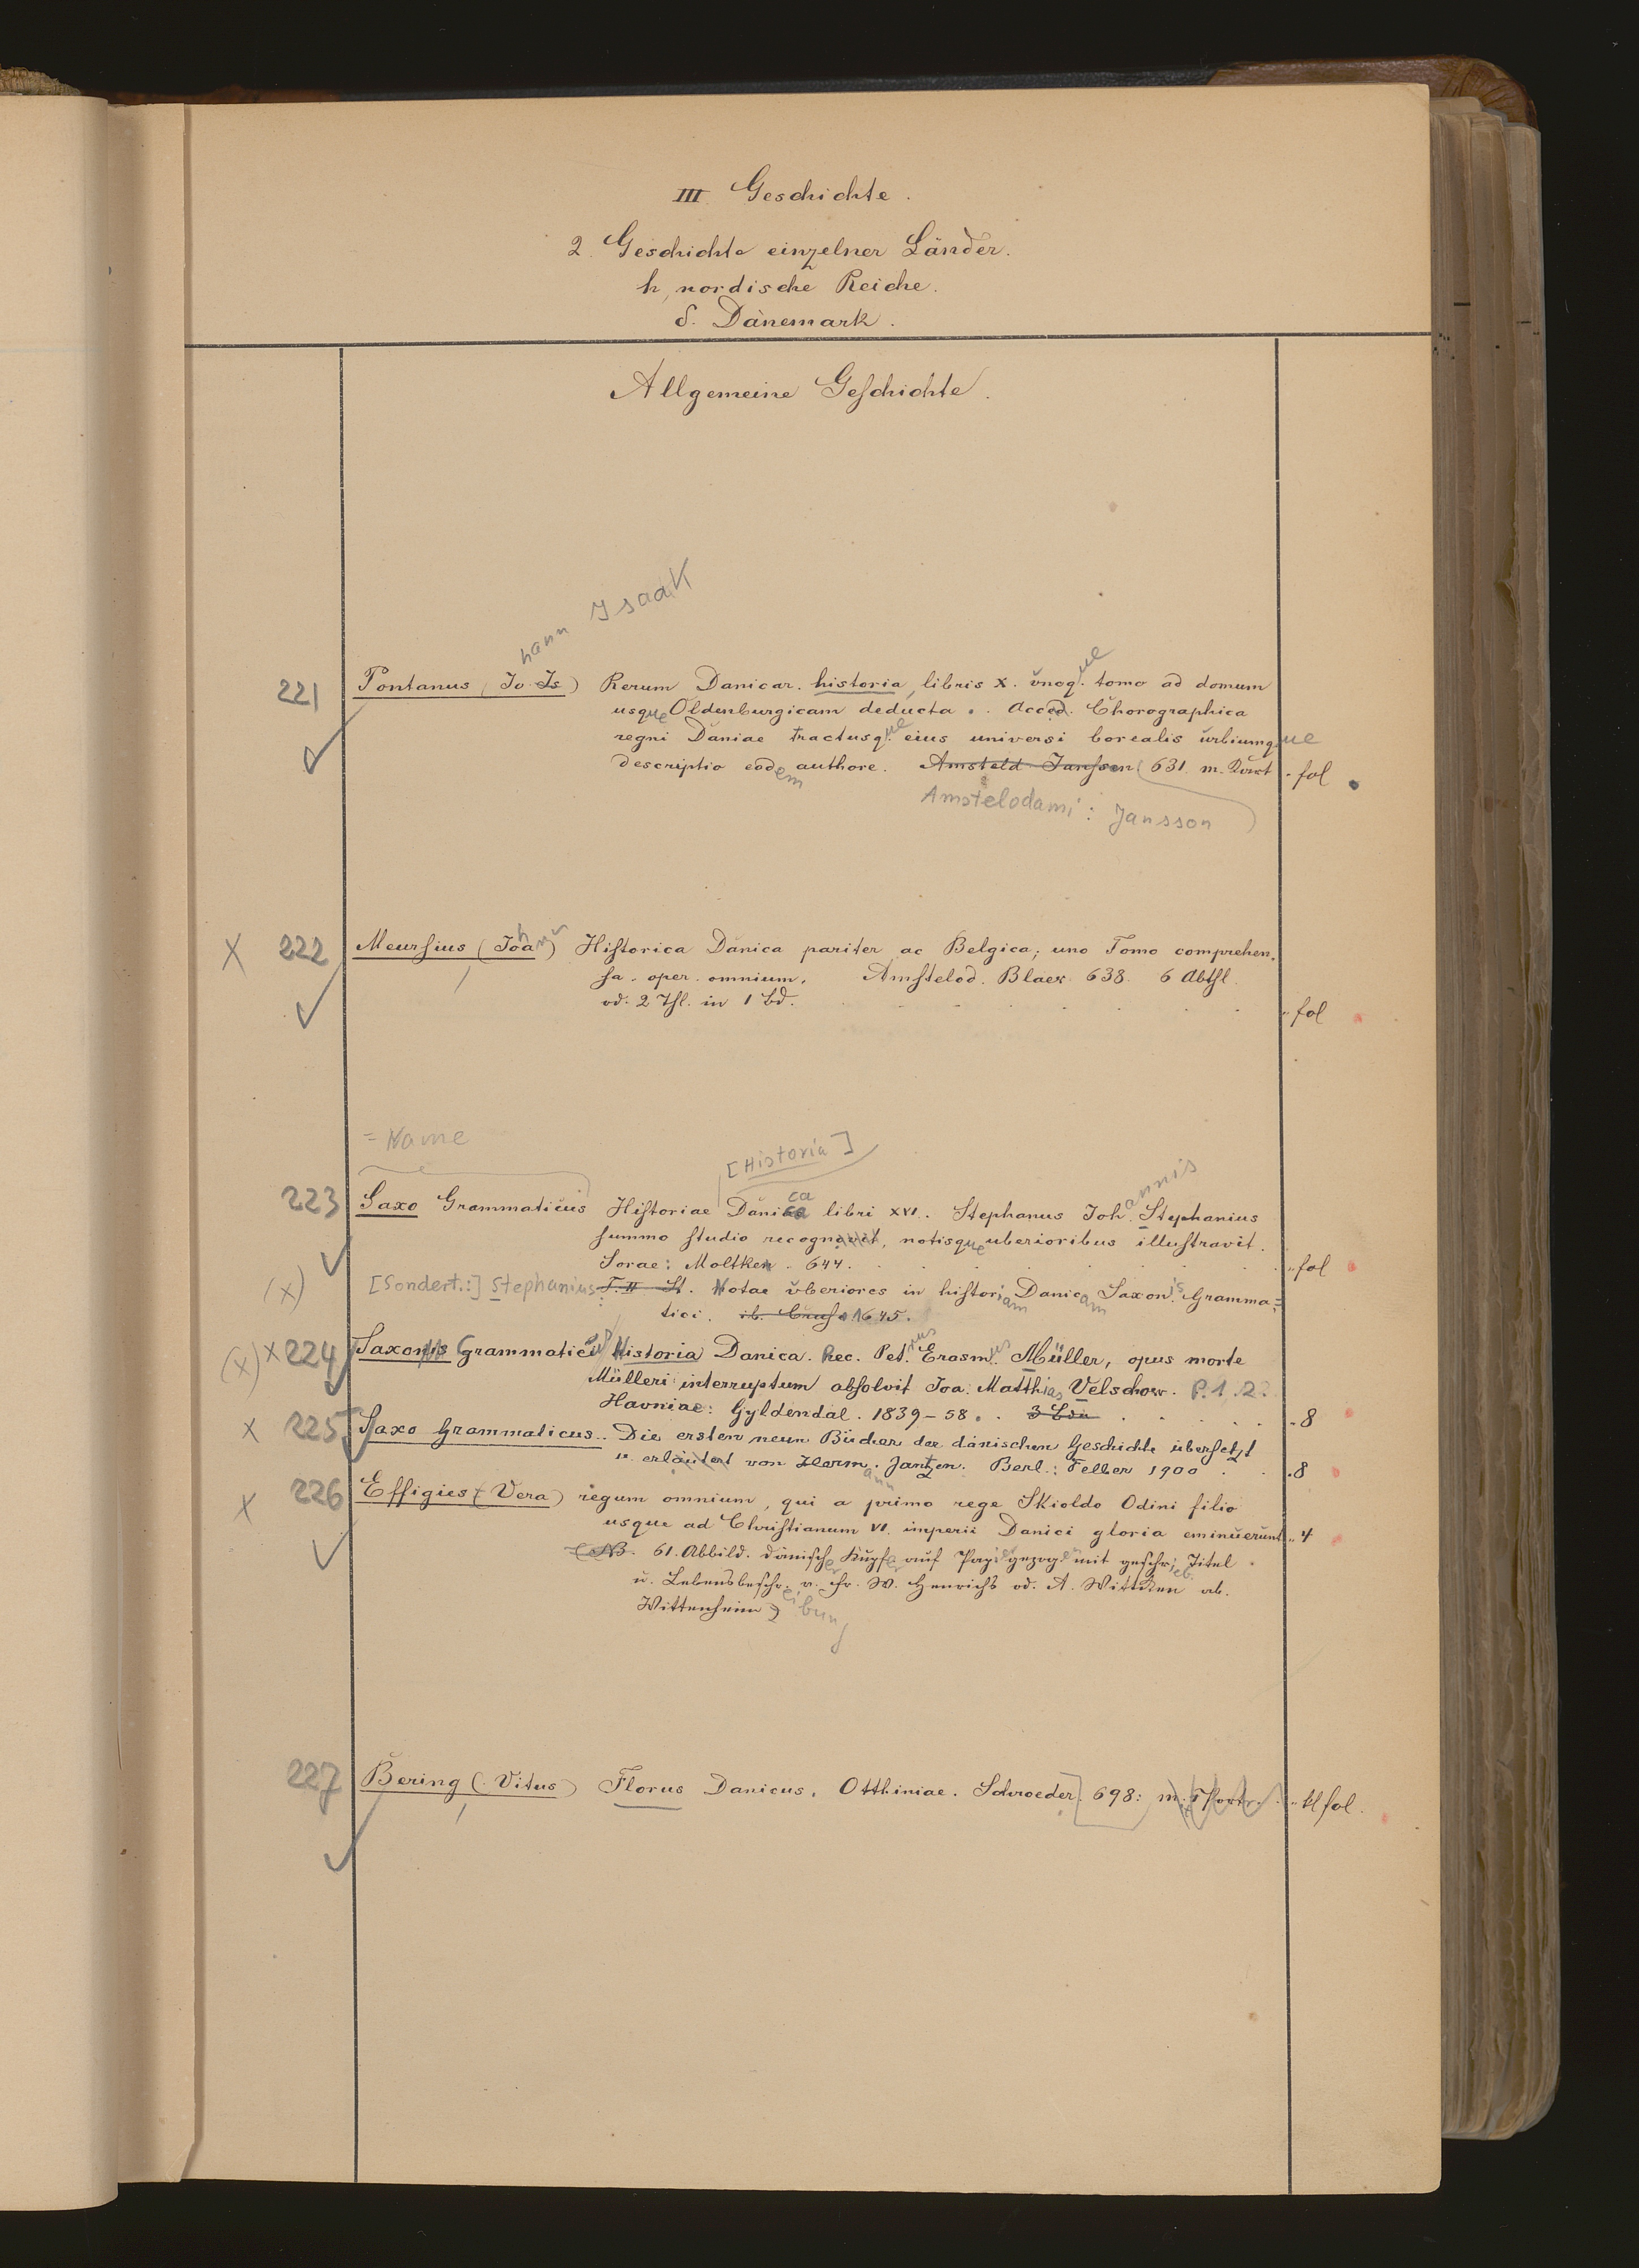 III Geschichte.
2. Geschichte einzelner Länder.
h, nordische Reiche.
δ. Dänemark.
Allgemeine Geschichte.
hann Isaak
221 Pontanus (Jo Is) Rerum Danicar. historia, libris X. unoq.ue tomo ad domum
usque Oldenburgicam deducta. Acced. Chorographica
regni Daniae tractusq.ue eius universi borealis urbiumque
descriptio eodem authore. Amsteld Janssen 631. m. fol
Amstelodami: Jansson
X 222 Meursius (Johann) Historica Danica pariter ac Belgica, uno Tomo comprehen,
sa. oper. omnium. Amstelod. Blaex. 638. 6 Abthl.
od. 2 Thl. in 1 Bd. fol
= Name
[Historia]
223 Saxo Grammaticus Historiae Danica libri XVI. Stephanus Johannis Stephanius
summo studio recognovit, notisque uberioribus illustravit.
Sorae: Moltken. 644. fol
(x) [Sondert.:] Stephanius: Notae uberiores in historiam Danicam Saxonis Gramma=
tici. 1645.
(x) x 224 Saxonis Grammatici Historia Danica. Rec. Petrus Erasmus Müller, opus morte
Mülleri interruptum absolvit Joa. Matthias Velschow. P. 1. 2.
Havniae: Gyldendal. 1839-58. 8
x 225 Saxo Grammaticus. Die ersten neun Bücher der dänischen Geschichte übersetzt
u. erläutert von Hermann Jantzen. Berl.: Felber 1900. 8
x 226 Effigies (Vera) regum omnium, qui a primo rege Skioldo Odini filio
usque ad Christianum VI. imperii Danici gloria eminuerunt 4
(NB. 61. Abbild. dänische Kupfer auf Papier gezogen mit geschrieb. Titel
u. Lebensbeschreibung v. Fr. W. Henrichs od. A. Wittken ab.
Wittenheim)
227 Bering (Vitus) Florus Danicus. Otthiniae. Schroeder. 698: m. Portr. kl fol.